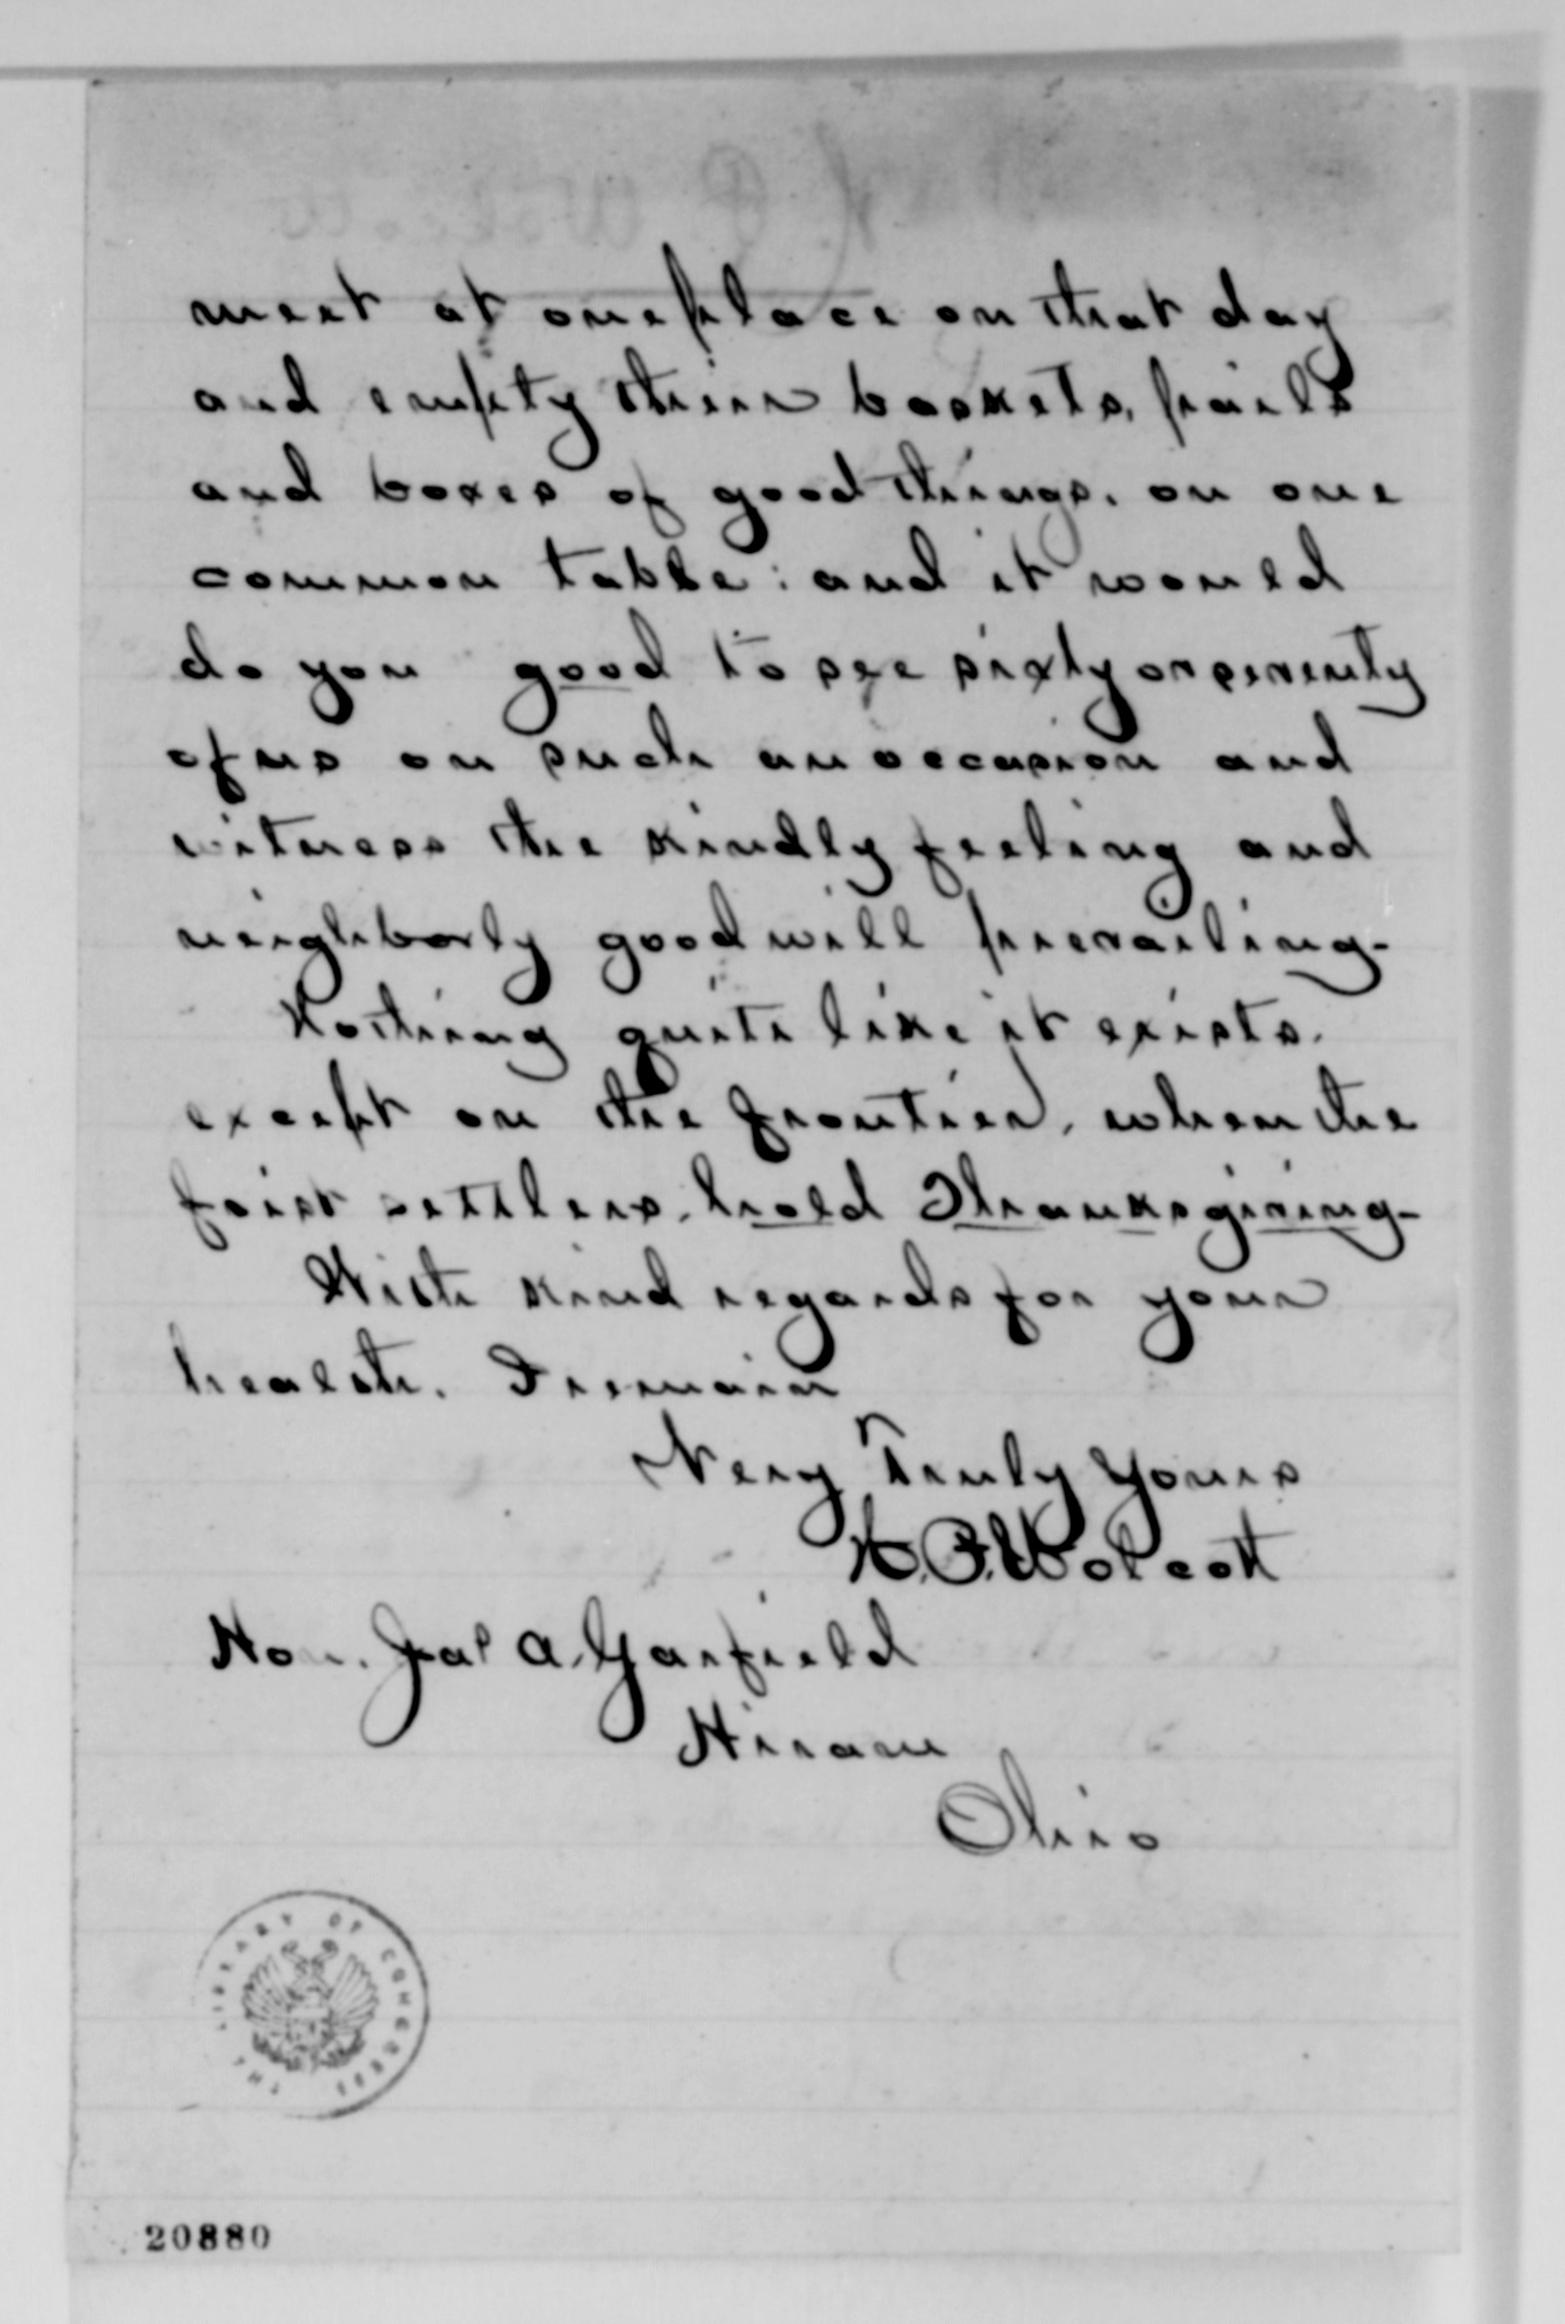 meet at one place on that day
and empty their baskets, pails
and boxes of good things, on one
common table: and it would
do you good to see sixty or seventy
of us on such an occasion and
witness the kindly feeling and
neighborly good will prevailing-
Nothing quite like it exists,
except on the frontier, when the
first settlers, hold Thanksgiving-
With kind regards for your
health, I remain
Very Truly Yours
Wolcott
Hon. Jas A. Garfield
Hiram
Ohio
THE LIBRARY OF CONGRESS
20880